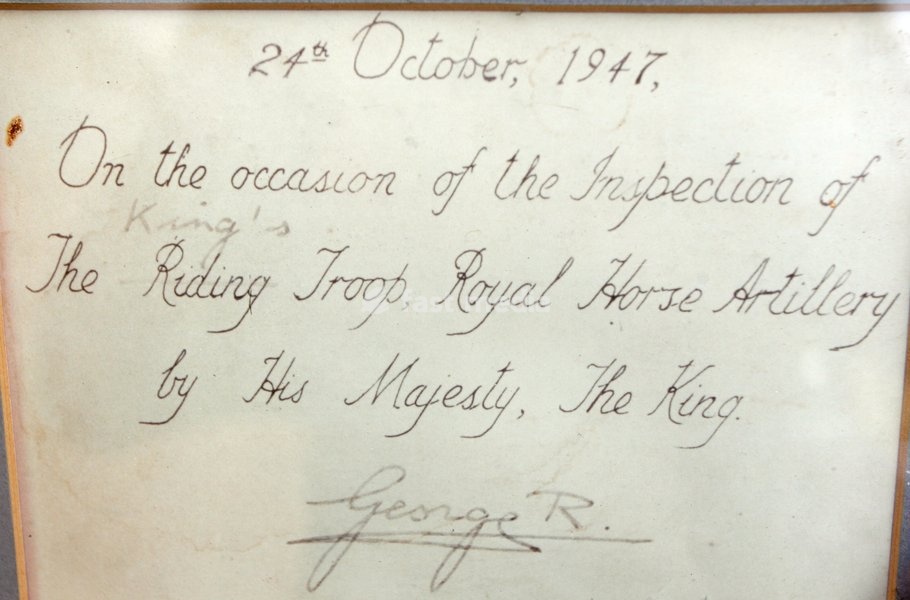 24th October, 1947,
On the occasion of the Inspection of
King's
The Riding Troop, Royal Horse Artillery
by His Majesty, The King.
George R.